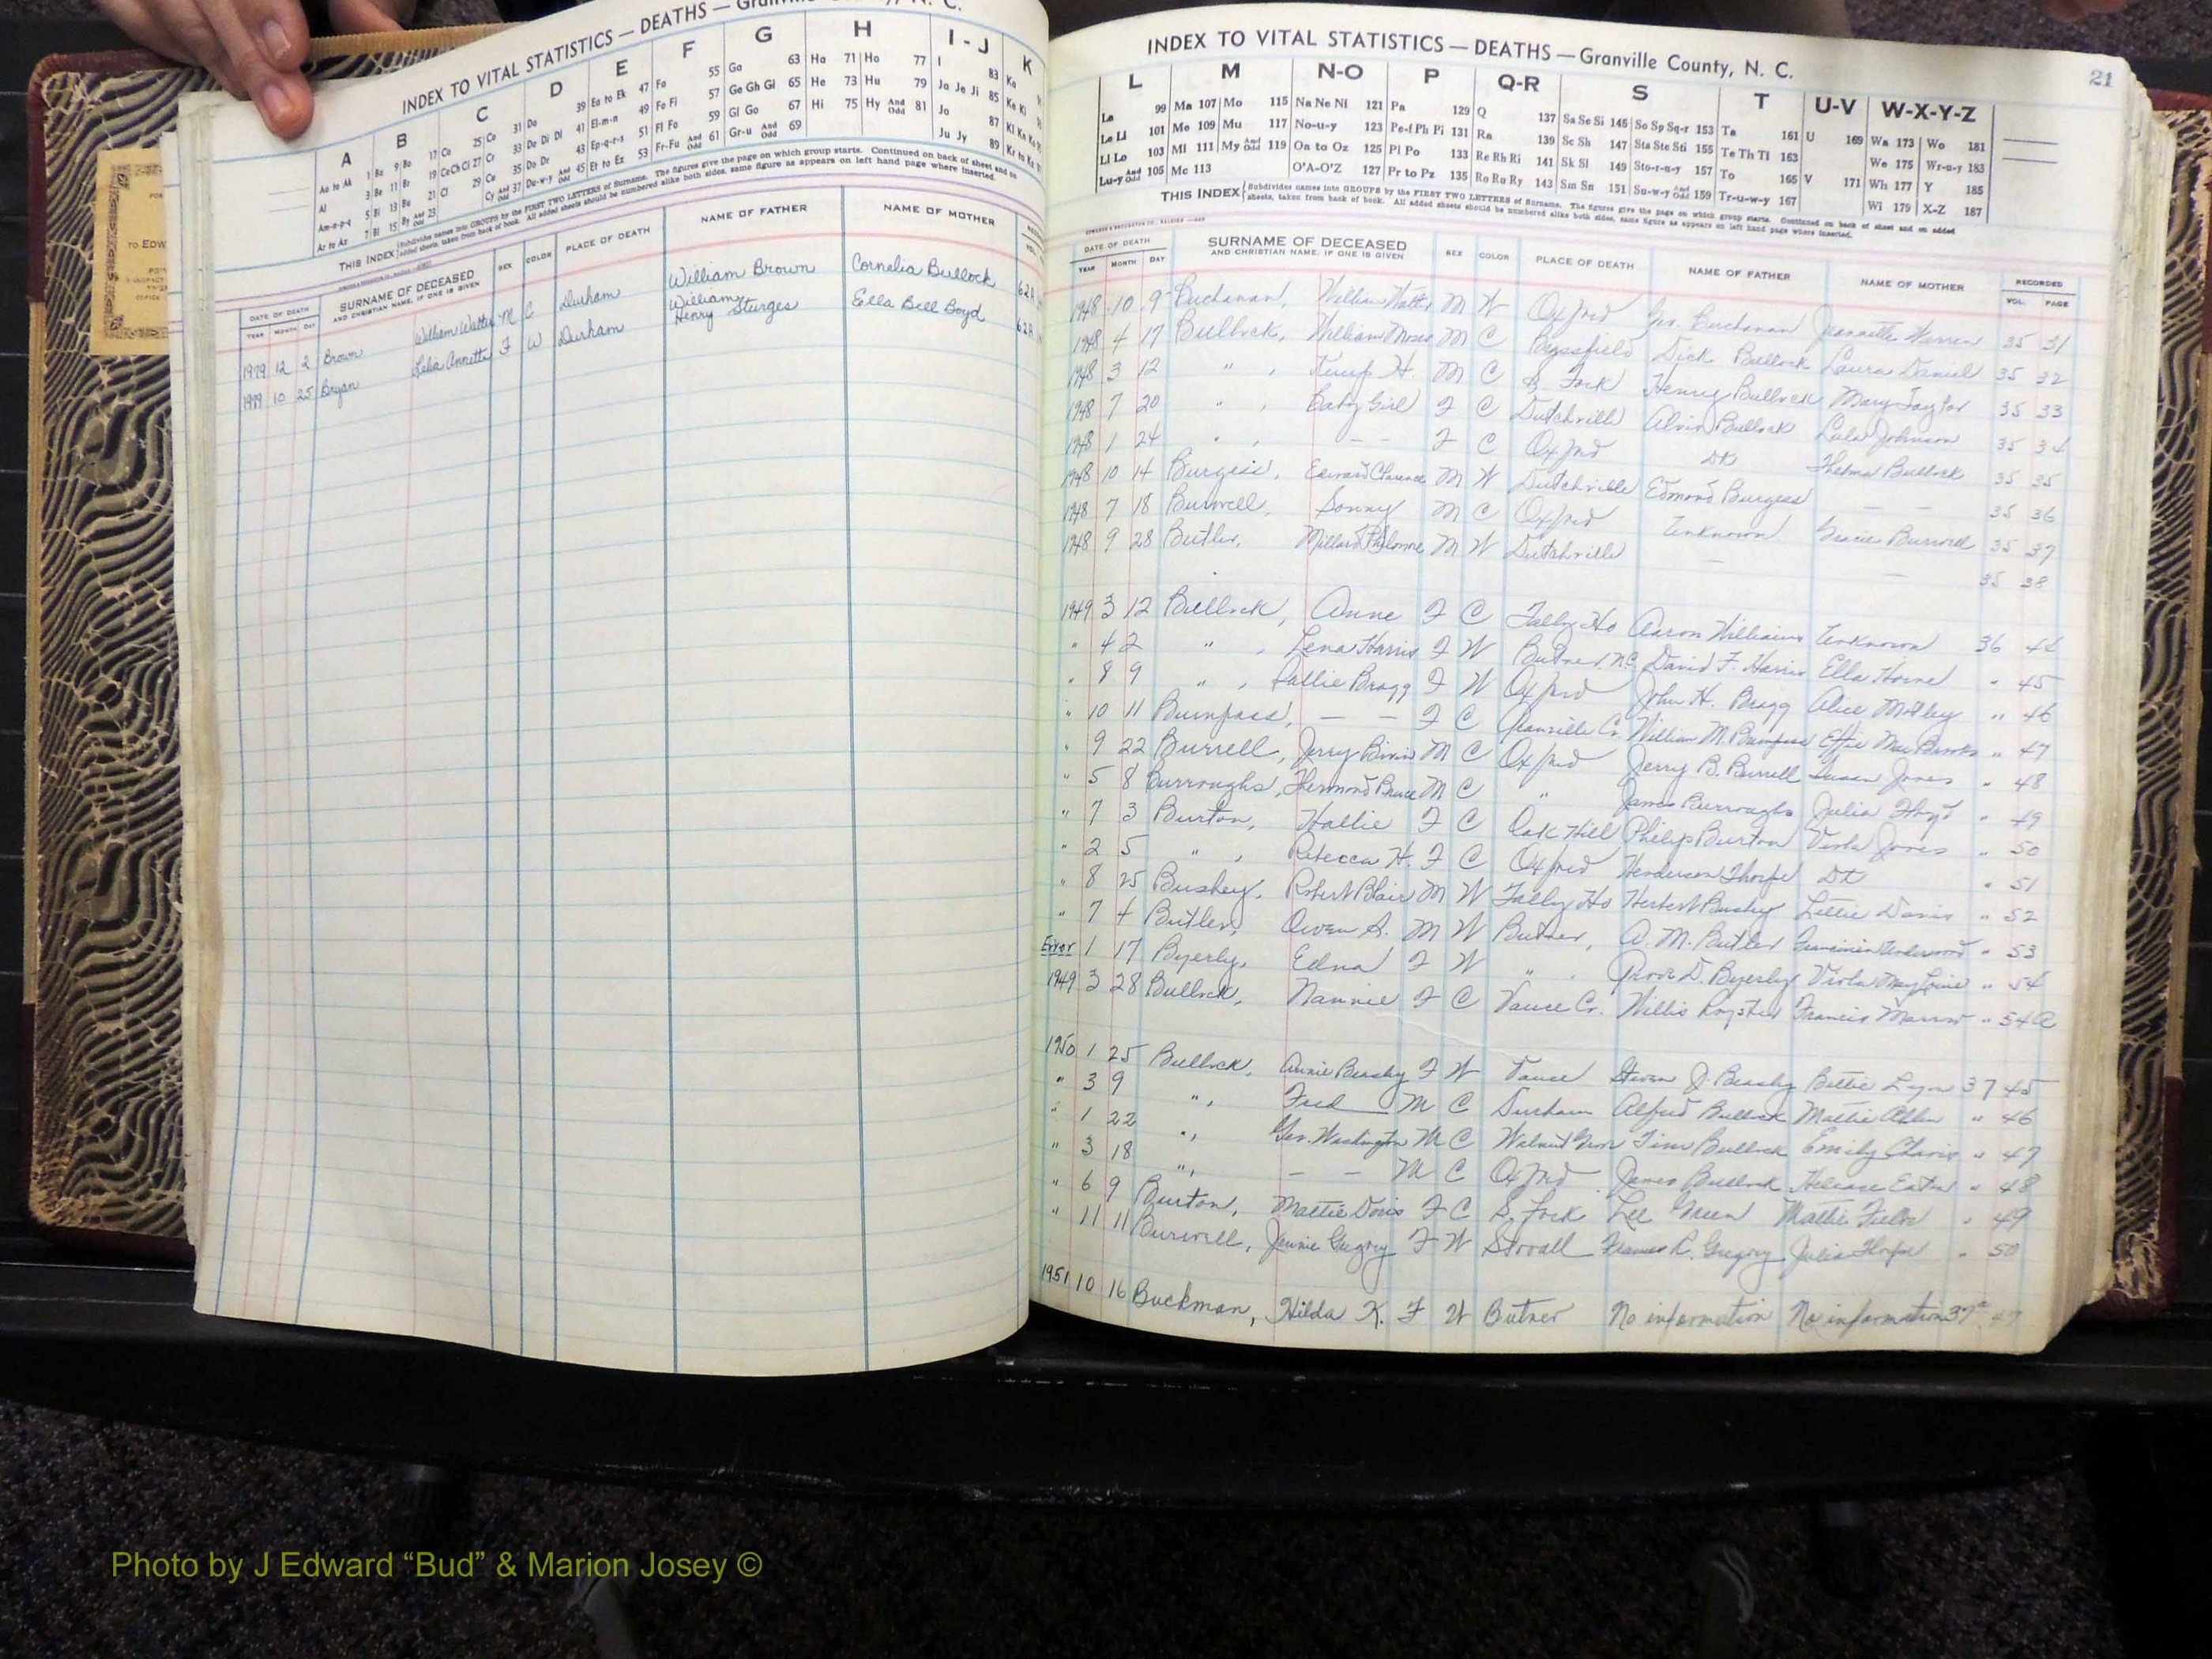 INDEX TO VITAL STATISTICS — DEATHS — Granville County, N. C.
A B C D E F G H I - J K
Aa to Ak 1 Ba 9 Bo 17 Ca 25 Co 31 Da 39 Ea to Ek 47 Fa 55 Ga 63 Ha 71 Ho 77 I 83 Ka
Al 3 Be 11 Br 19 Ce Ch Ci 27 Cr 33 De Di Dl 41 El-m-n 49 Fe Fi 57 Ge Gh Gi 65 He 73 Hu 79 Ja Je Ji 85 Ke Ki
Am-n-p-q 5 Bi 13 Bu 21 Cl 29 Cu 35 Do Dr 43 Ep-q-r-s 51 Fl Fo 59 Gl Go 67 Hi 75 Hy And Odd 81 Jo 87
Ar to Az 7 Bl 15 By And Odd 23 Cy And Odd 37 Du-w-y And Odd 45 Et to Ez 53 Fr-Fu And Odd 61 Gr-u And Odd 69 Ju Jy 89 Kr to Kz
THIS INDEX Subdivides names into GROUPS by the FIRST TWO LETTERS of Surname. The figures give the page on which group starts. Continued on back of sheet and on
added sheets, taken from back of book. All added sheets should be numbered alike both sides, same figure as appears on left hand page where inserted.
DATE OF DEATH SURNAME OF DECEASED SEX COLOR PLACE OF DEATH NAME OF FATHER NAME OF MOTHER
YEAR MONTH DAY AND CHRISTIAN NAME, IF ONE IS GIVEN
1979 12 2 Brown William Walter M C Durham William Brown Cornelia Bullock 62A
1979 10 25 Bryan Lelia Annette F W Durham William Henry Sturges Ella Bell Boyd 62A
INDEX TO VITAL STATISTICS — DEATHS — Granville County, N. C.
21
L M N-O P Q-R S T U-V W-X-Y-Z
La 99 Ma 107 Mo 115 Na Ne Ni 121 Pa 129 Q 137 Sa Se Si 145 So Sp Sq-r 153 Ta 161 U 169 Wa 173 Wo 181
Le Li 101 Me 109 Mu 117 No-u-y 123 Pe-f Ph Pi 131 Ra 139 Sc Sh 147 Sta Ste Sti 155 Te Th Ti 163 We 175 Wr-u-y 183
Ll Lo 103 Mi 111 My And Odd 119 On to Oz 125 Pl Po 133 Re Rh Ri 141 Sk Sl 149 Sto-r-u-y 157 To 165 V 171 Wh 177 Y 185
Lu-y And Odd 105 Mc 113 O'A-O'Z 127 Pr to Pz 135 Ro Ru Ry 143 Sm Sn 151 Su-w-y And Odd 159 Tr-u-w-y 167 Wi 179 X-Z 187
THIS INDEX Subdivides names into GROUPS by the FIRST TWO LETTERS of Surname. The figures give the page on which group starts. Continued on back of sheet and on added
sheets, taken from back of book. All added sheets should be numbered alike both sides, same figure as appears on left hand page where inserted.
DATE OF DEATH SURNAME OF DECEASED SEX COLOR PLACE OF DEATH NAME OF FATHER NAME OF MOTHER RECORDED
YEAR MONTH DAY AND CHRISTIAN NAME, IF ONE IS GIVEN VOL. PAGE
1948 10 9 Buchanan, William M W Oxford Geo. Buchanan Jeannette Warren 35 31
1948 4 17 Bullock, William Moses M C Dick Bullock Laura Daniel 35 32
1948 3 12 " , Kemp H. M C S. Fork Henry Bullock Mary Taylor 35 33
1948 7 20 " , Baby Girl F C Dutchville Alvin Bullock Lula Johnson 35 34
1948 1 24 " , — — F C Oxford DK Thelma Bullock 35 35
1948 10 14 Burgess, Edward Clarence M W Dutchville Edmond Burgess — — 35 36
1948 7 18 Burwell, Sonny M C Oxford Unknown Burwell 35 37
1948 9 28 Butler, Millard M W Dutchville — — 35 38
1949 3 12 Bullock, Anne F C Tally Ho Aaron Williams Unknown 36 44
" 4 2 " , Lena Harris F W Butner, N.C. David F. Harris Ella Horne " 45
" 8 9 " , Sallie Bragg F W Oxford John H. Bragg Alice Motley " 46
" 10 11 Bumpass, — — F C Granville Co. William M. Bumpass Effie Mae Brooks " 47
" 9 22 Burrell, Jerry M C Oxford Jerry B. Burrell Susan Jones " 48
" 5 8 Burroughs, Thermond Bruce M C " James Burroughs Julia " 49
" 7 3 Burton, Hallie F C Oak Hill Philip Burton Viola Jones " 50
" 2 5 " , Rebecca H. F C Oxford Henderson Thorpe DK " 51
" 8 25 Bushey, Robert Blair M W Tally Ho Herbert Bushey Lettie Davis " 52
" 7 4 Butler, Owen S. M W Butner, A. M. Butler Underwood " 53
Error 1 17 Byerly, Edna F W " . D. Byerly Viola May " 54
1949 3 28 Bullock, Nannie F C Vance Co. Willis Royster Francis Marrow " 54A
1950 1 25 Bullock, Annie Beasley F W Vance J. Beasley Bettie Lyon 37 45
" 3 9 " , Fred M C Durham Alfred Bullock Mattie Allen " 46
" 1 22 " , Geo. Washington M C Walnut Grove Tim Bullock Emily Chavis " 47
" 3 18 " , — — M C Oxford James Bullock Eaton " 48
" 6 9 Burton, Mattie Doris F C S. Fork Lee Green Mattie Fields " 49
" 11 11 Burwell, Jennie Gregory F W Stovall R. Gregory Julia " 50
1951 10 16 Buckman, Hilda K. F W Butner No information No information 37 47
Photo by J Edward “Bud” & Marion Josey ©